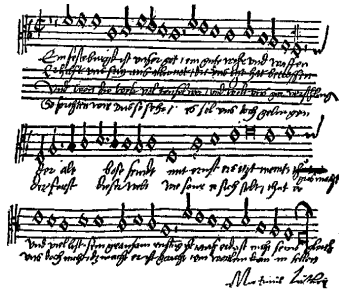 Ein feste burg ist unser got / ein gute wehr und waffen
Er hilfft uns frey aus aller not / die uns itzt hat betroffen
Und wenn die welt vol teuffel wer / und wolt uns gar verschling
So furchten wir uns nicht so sehr / es sol uns doch gelingen
Der alt bose feindt mit ernst ers itzt meint gros macht
der furst dieser welt wie saur er sich stelt thut er
und viel list sein grausam rustung ist auf erd ist nicht seins gleich
uns doch nicht macht er ist gericht ein wortlin kan in fellen
Martinus Luther